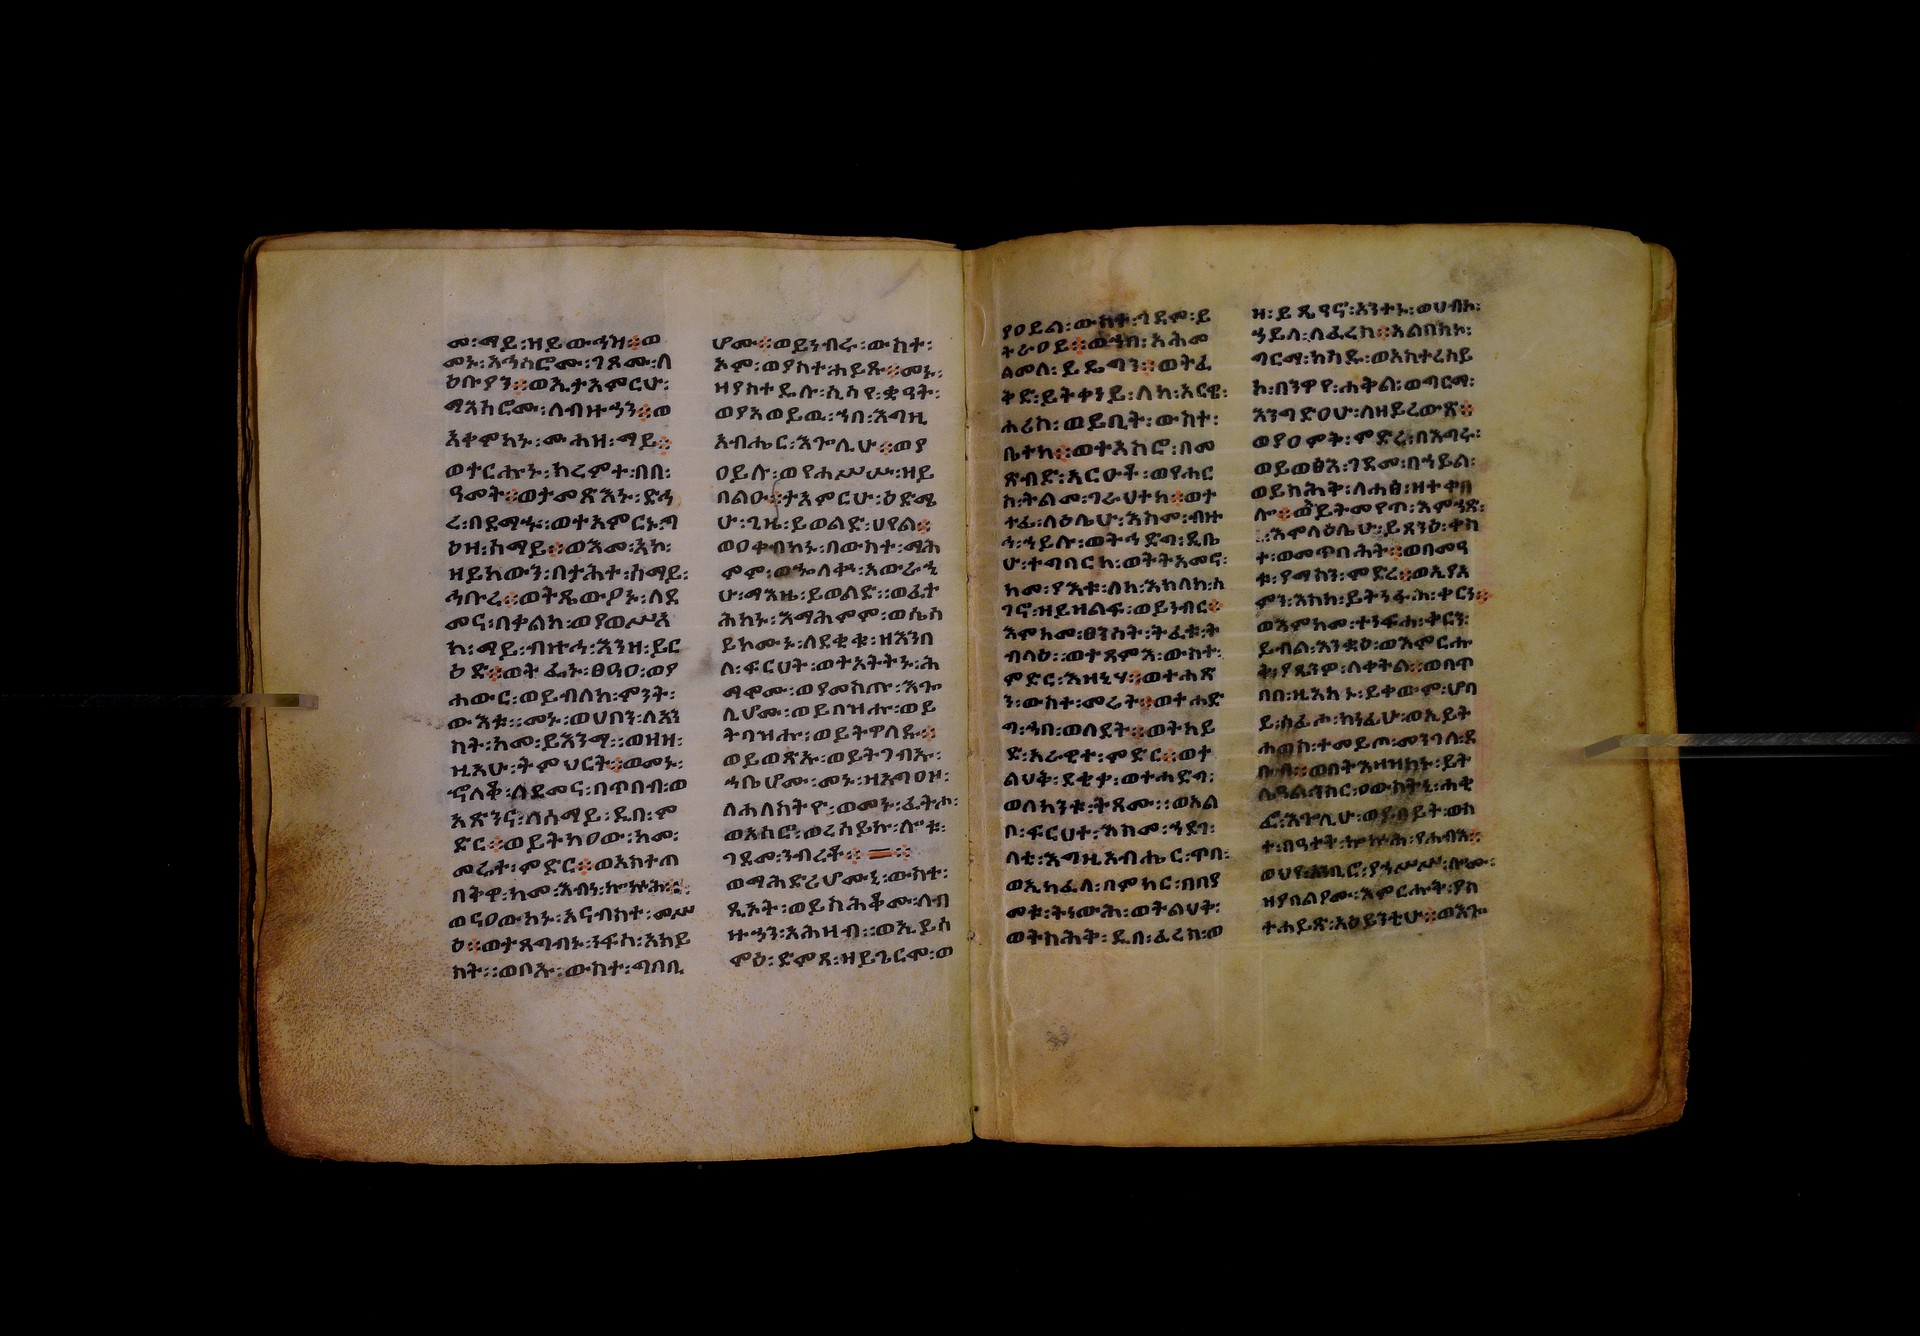 መ፡ማይ፡ዘይውኅዝ፨ወ
መኑ፡አኅስሮሙ፡ገጾሙ፡ለ
ዕቡያን፨ወኢታአምርሁ፡
ማእሰሮሙ፡ለብዙኅን፨ወ
እቀምከኑ፡ሙሐዘ፡ማይ፨
ወተርሑኑ፡ክረምተ፡በበ፡
ዓመት፨ወታመጽእኑ፡ድኅ
ረ፡በደማኁ፡ወተአምርኑ፡ግ
ዕዘ፡ሰማይ፨ወእመ፡እኮ፡
ዘይከውን፡በታሕተ፡ሰማይ፡
ኅቡረ፨ወትጼውዖኑ፡ለደ
መና፡በቃልከ፡ወያወሥእ
ከ፡ማይ፡ብዙኅ፡እንዘ፡ይር
ዕድ፨ወትፌኑ፡ፀዓዐ፡ወያ
ሐውር፡ወይብለከ፡ምንት፡
ውእቱ፡፡መኑ፡ወሀበን፡ለአን
ስት፡ከመ፡ይእንማ፡፡ወዘዘ፡
ዚአሁ፡ትምህርት፨ወመኑ፡
ኖለቆ፡ለደመና፡በጥበብ፡ወ
አጽንና፡ለሰማይ፡ዲበ፡ም
ድር፨ወይትከዐው፡ከመ፡
መሬት፡ምድር፨ወአስተጠ
በትዋ፡ከመ፡እብነ፡ኰኵሕ፨
ወናዐውከኑ፡አናብስተ፡መሥ
ዕ፨ወታጸግብኑ፡ነፍሰ፡አክይ
ስት፡፡ወቦኡ፡ውስተ፡ግበቢ
ሆሙ፨ወይነብሩ፡ውስተ፡
እም፡ወያስተሐይጹ፨መኑ፡
ዘያስተዴሉ፡ሲሳየ፡ቋዓት፡
ወያአወይዉ፡ኀበ፡እግዚ
አብሔር፡እጐሊሁ፨ወያ
ዐይሉ፡ወየሐሥሡ፡ዘይ
በልዑ፨ታአምርሁ፡ዕድሜ
ሁ፡ጊዜ፡ይወልድ፡ሀየል፨
ወዐቀብከኑ፡በውስተ፡ማሕ
ምም፡ወኈለቀ፡አውራኂ
ሁ፡ማእዜ፡ይወልድ፡፡ወፈተ
ሕከኑ፡እማሕምም፡ወሴሰ
ይከሙኑ፡ለደቂቁ፡ዘእንበ
ለ፡ፍርሀት፡ወተአትትኑ፡ሕ
ማሞሙ፡ወያመስጡ፡እጐ
ሊሆሙ፡ወይበዝሑ፡ወይ
ትባዝሑ፡ወይትዋለዱ፨
ወይወጽኡ፡ወይትገብኡ፡
ኀቤሆሙ፡መኑ፡ዘአግዐዞ፡
ለሐለስትዮ፡ወመኑ፡ፈትሖ፡
ወእሰሮ፡ወረሰይኩ፡ሎቱ፡
ገዳመ፡ንብረቶ፨
ወማሕድሪሆሙኒ፡ውስተ፡
ጼአት፡ወይስሕቆሙ፡ለብ
ዙኅን፡አሕዛብ፡፡ወኢይሰ
ምዕ፡ድምጸ፡ዘይጌርሞ፡ወ
ያዐይል፡ውስተ፡ገዳም፡ይ
ትራዐይ፨ወኀበ፡አሕመ
ልመለ፡ይዴግን፨ወትፈ
ቅድ፡ይትቀነይ፡ለከ፡አርዌ፡
ሐሪስ፡ወይቢት፡ውስተ፡
ቤተከ፨ወተአስሮ፡በመ
ጽብድ፡አርዑት፡ወየሐር
ስ፡ትልመ፡ገራህተከ፨ወተ
ተፌ፡ለዕሌሁ፡እስመ፡ብዙ
ኅ፡ኀይሉ፡ወትኀድግ፡ዲቤ
ሁ፡ተግባርከ፡ወትትአመኖ፡
ከመ፡ያእቱ፡ለከ፡እክለከ፡ለ
ገኖ፡ዘይዘልፍ፡ወይነብር፨
እምከመ፡ፀንሰት፡ትፈቱ፡ት
ብላዕ፡፡ወተጸምእ፡ውስተ፡
ምድር፡እዘኒሃ፨ወተሐጽ
ን፡ውስተ፡መሬት፨ወተሐድ
ግ፡ኀበ፡ወለደት፨ወትከይ
ድ፡አራዊተ፡ምድር፨ወተ
ልህቅ፡ደቂቃ፡ወተሐድግ፡
ወለከንቱ፡ትጻሙ፡፡ወአል
ቦ፡ፍርሀተ፡እስመ፡ኀደገ፡
ላቲ፡እግዚአብሔር፡ጥበ፡
ወኢከፈለ፡በምክር፡በበያ
መቱ፡ትነውሕ፡ወትልህት፡
ወትስሕት፡ዲበ፡ፈረስ፡ወ
ዘ፡ይጼዓኖ፡አንተኑ፡ወሀብኮ፡
ኀይለ፡ለፈረስ፨አልበስኮ፡
ግርማ፡ክሳዱ፡ወአስተረሰይ
ከ፡በንዋየ፡ሐቅል፡ወግርማ፡
እንግድዐሁ፡ለዘይረውጽ፨
ወያዐምት፡ምድረ፡በእግሩ፡
ወይወፅእ፡ገዳመ፡በኀይል፡
ወይስሕት፡ለሐፅ፡ዘተቀበ
ሎ፨ወኢይትመየጥ፡እምኀጺ፡
እምላዕሌሁ፡ይጸንዕ፡ቀስ
ት፡ወመጥባሕት፨ወበመዓ
ቱ፡ያማስን፡ምድረ፨ወኢያአ
ምን፡እስከ፡ይትነፋሕ፡ቀርን፨
ወእምከመ፡ተነፍሐ፡ቀርን፡
ይብል፡እንቋዕ፡ወእምርሑ
ቅ፡ያጼንም፡ለቀትል፨ወበጥ
በበ፡ዚአከኑ፡ይቀውም፡ሆባ
ይ፡ሰፊሖ፡ክነፊሁ፡ወኢይት
ሐወስ፡ተመይጦ፡መንገለ፡ደ
ቡብ፨ወበትእዛዝከኑ፡ይት
ሌዓል፡ንስር፡ወውስትኒ፡ሐቂ
ፎ፡እጐሊሁ፡ወያበይት፡ውስ
ተ፡በዓተት፡ኰኵሕ፡የሐብእ፨
ወሀየ፡ነቢሮ፡ያኀሥሥ፡ሎሙ፡
ዘያበልዖሙ፡እምርሑት፡ያስ
ተሐይጽ፡አዕይንቲሁ፨ወእጐ